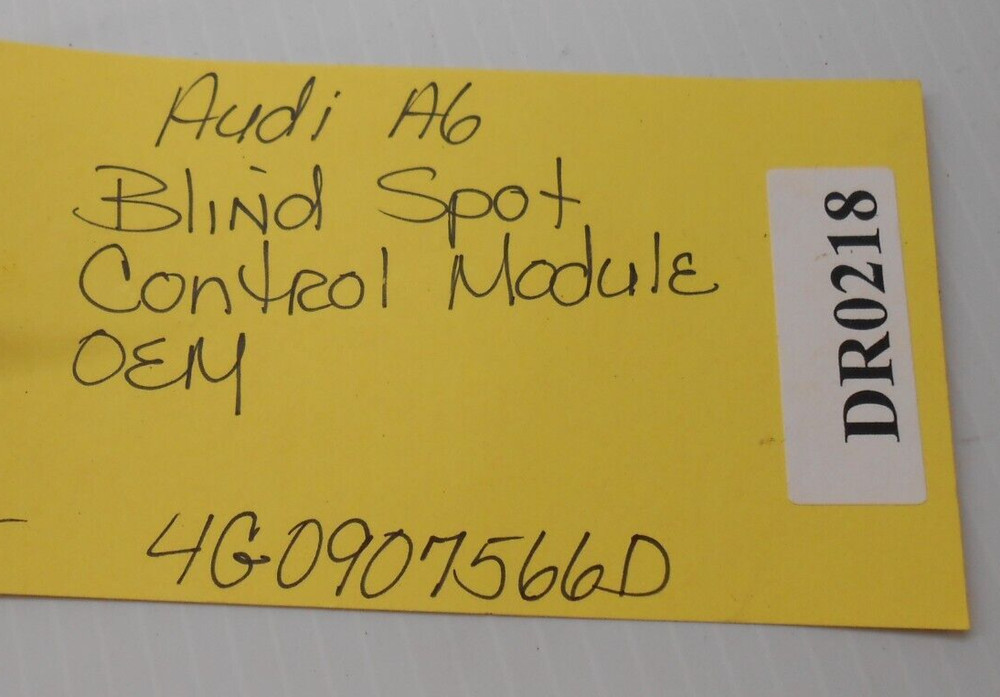 Audi A6
Blind Spot
Control Module
OEM
4G0907566D
DR0218